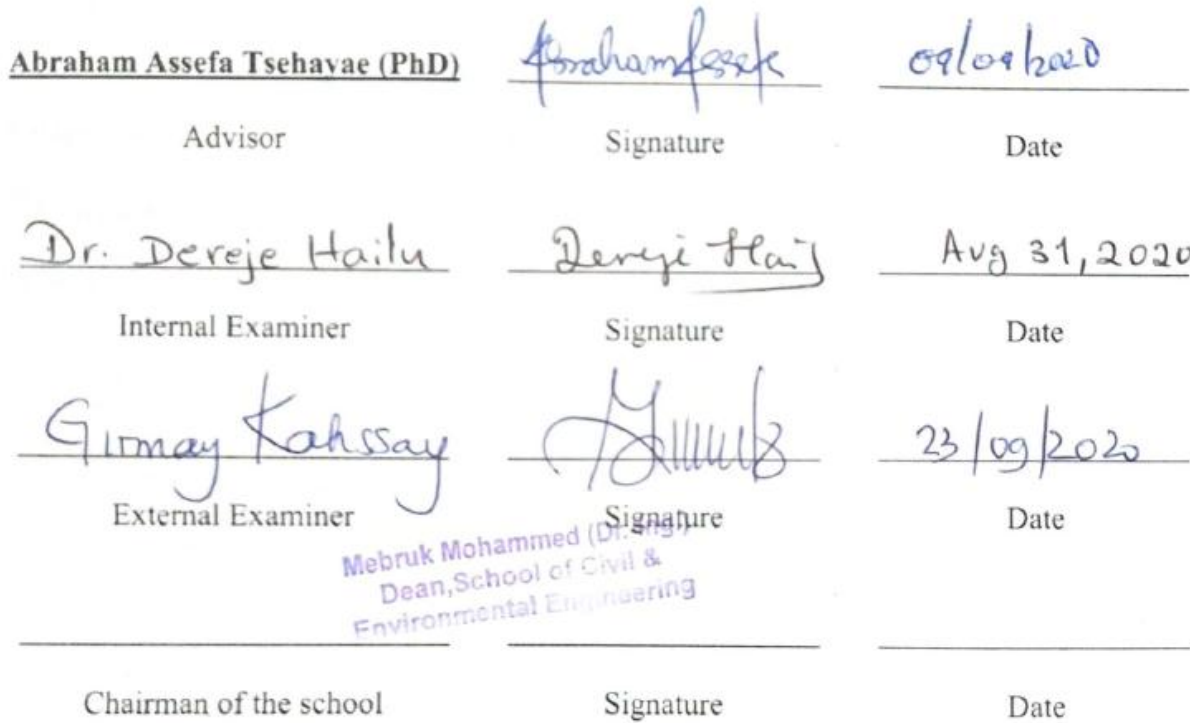 Abraham Assefa Tsehavae (PhD) Abraham Assefa 09/09/2020
Advisor Signature Date
Dr. Dereje Hailu Dereje Hail Aug 31, 2020
Internal Examiner Signature Date
Girmay Kahssay 23/09/2020
External Examiner Signature Date
Mebruk Mohammed (Dr.-Ing.)
Dean, School of Civil &
Environmental Engineering
Chairman of the school Signature Date